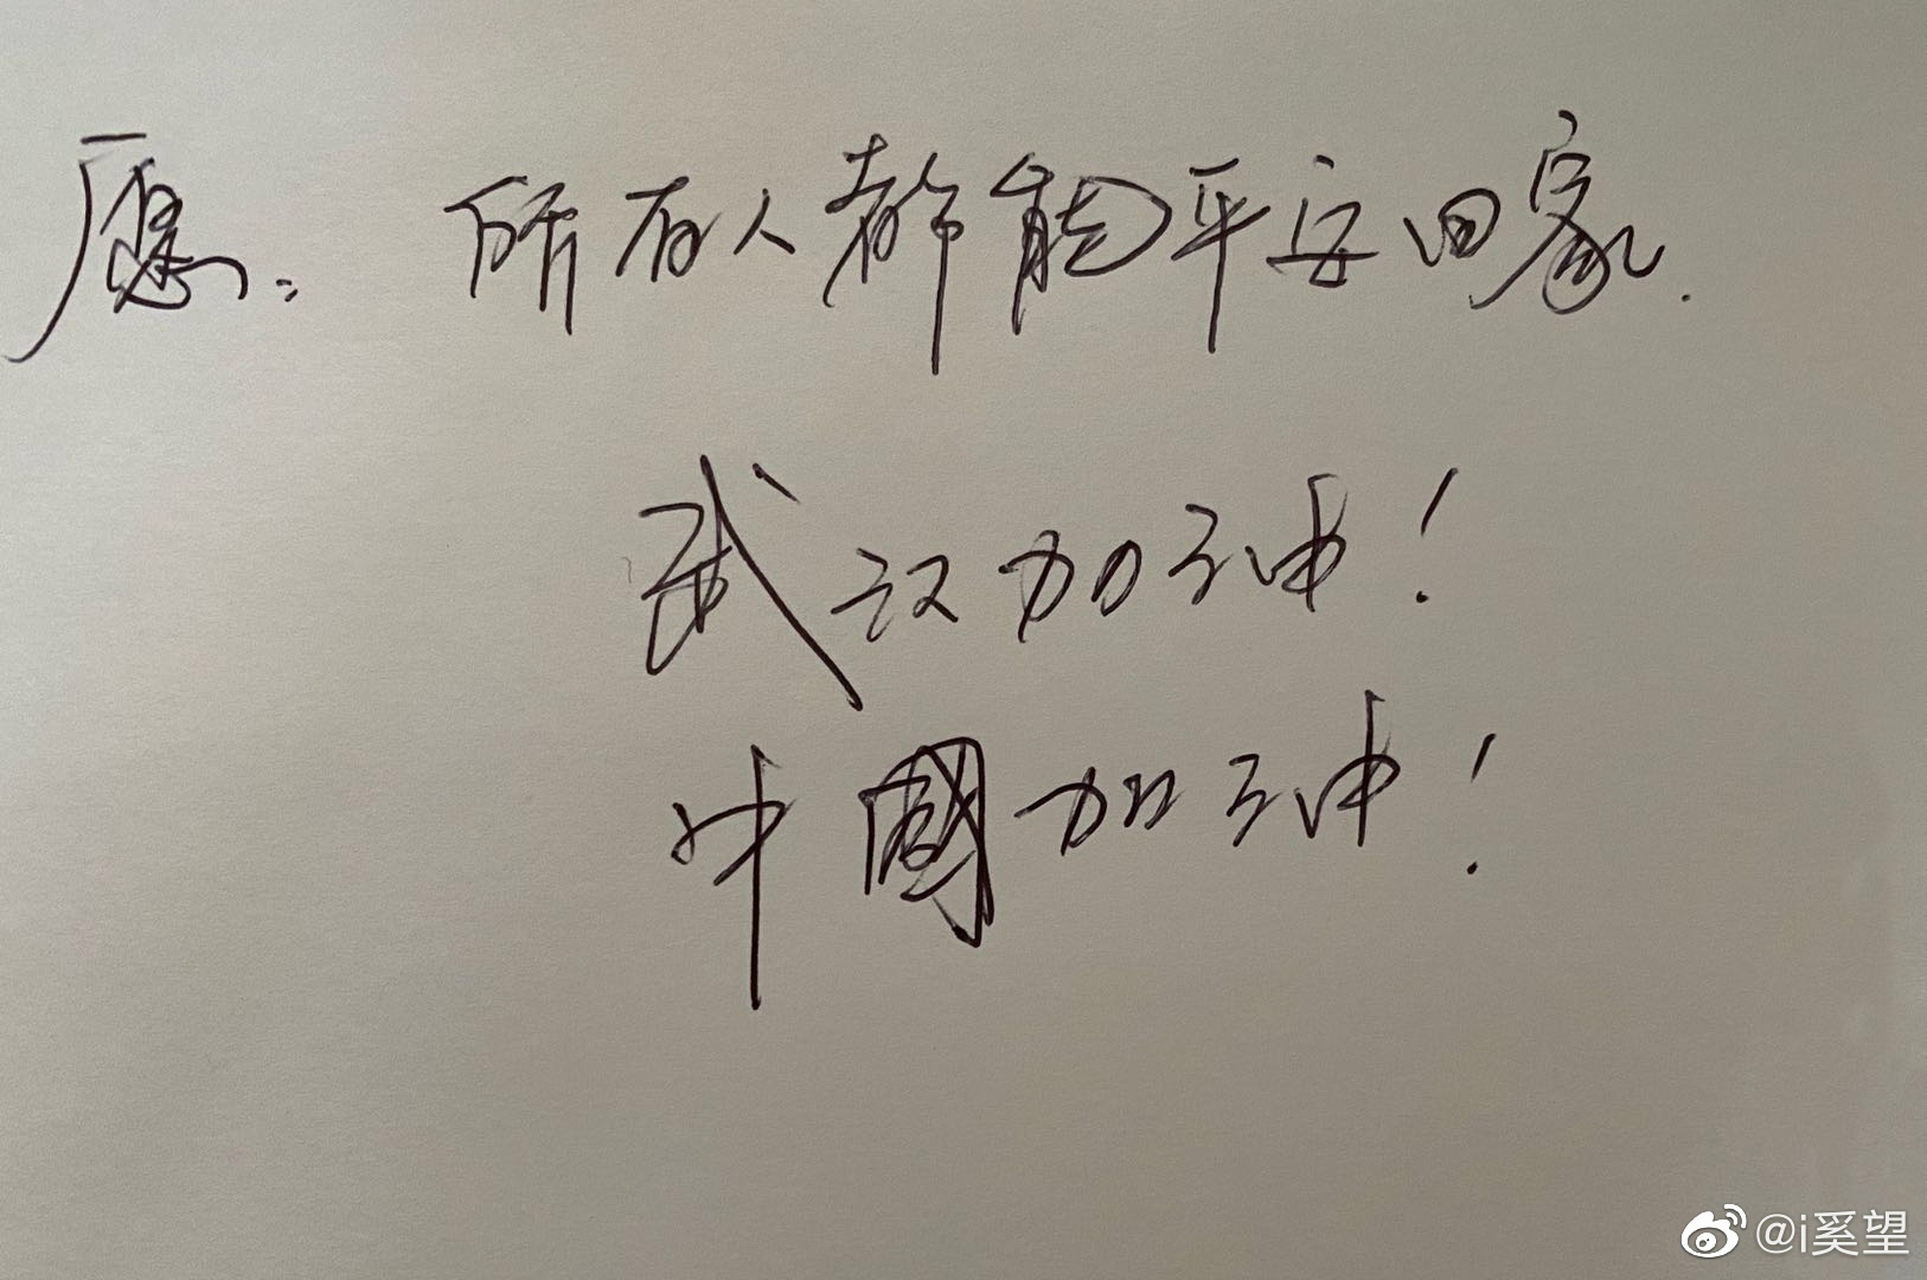 愿：所有人都能平安回家.
武汉加油！
中國加油！
@i奚望